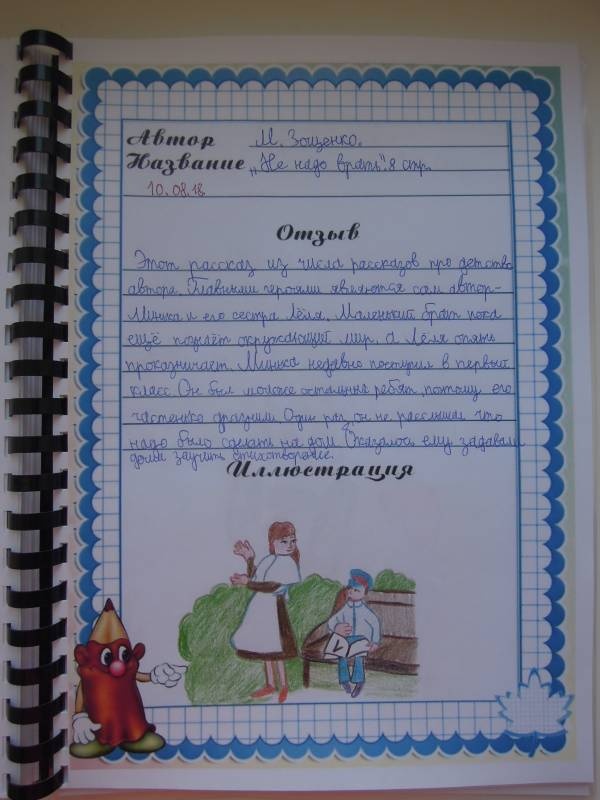 Автор М. Зощенко.
Название „Не надо врать". 8 стр.
10.08.18
Отзыв
Этот рассказ из числа рассказов про детство
автора. Главными героями являются сам автор-
Минька и его сестра Лёля. Маленький брат пока
ещё познаёт окружающий мир, а Лёля опять
проказничает. Минка недавно поступил в первый
класс. Он был моложе остальных ребят, поэтому его
частенько дразнили. Один раз, он не расслышал что
надо было сделать на дом. Оказалось, ему задавали
дома заучить стихотворение.
Иллюстрация